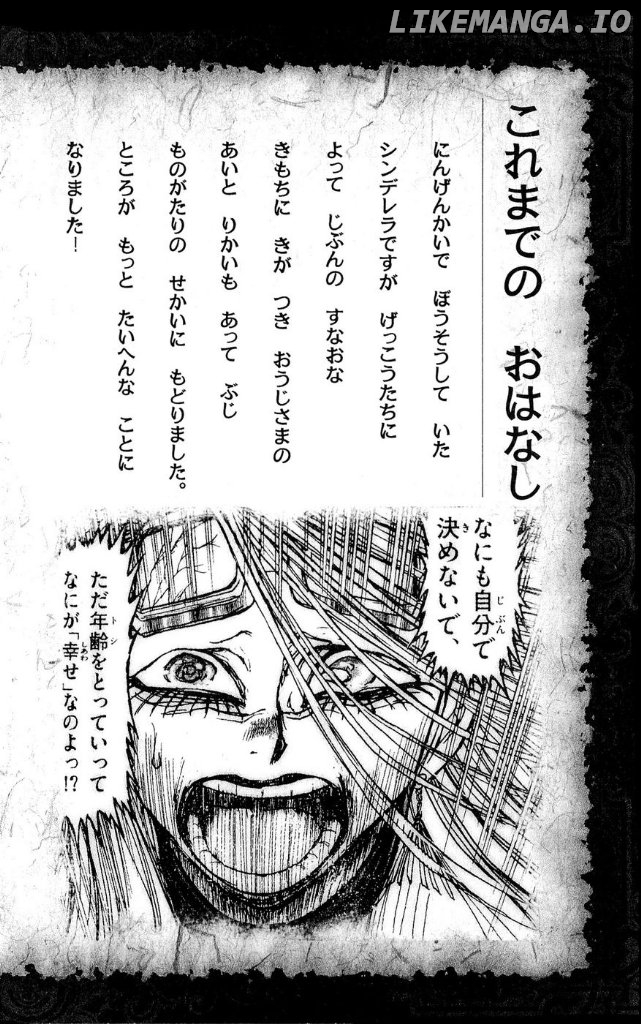 LIKEMANGA.IO
これまでの おはなし
にんげんかいで ぼうそうして いた
シンデレラですが げっこうたちに
よって じぶんの すなおな
きもちに きが つき おうじさまの
あいと りかいも あって ぶじ
ものがたりの せかいに もどりました。
ところが もっと たいへんな ことに
なりました!
なにも自分で
じぶん
決めないで、
き
ただ年齢をとっていって
トシ
なにが「幸せ」なのよっ!?
しあわ